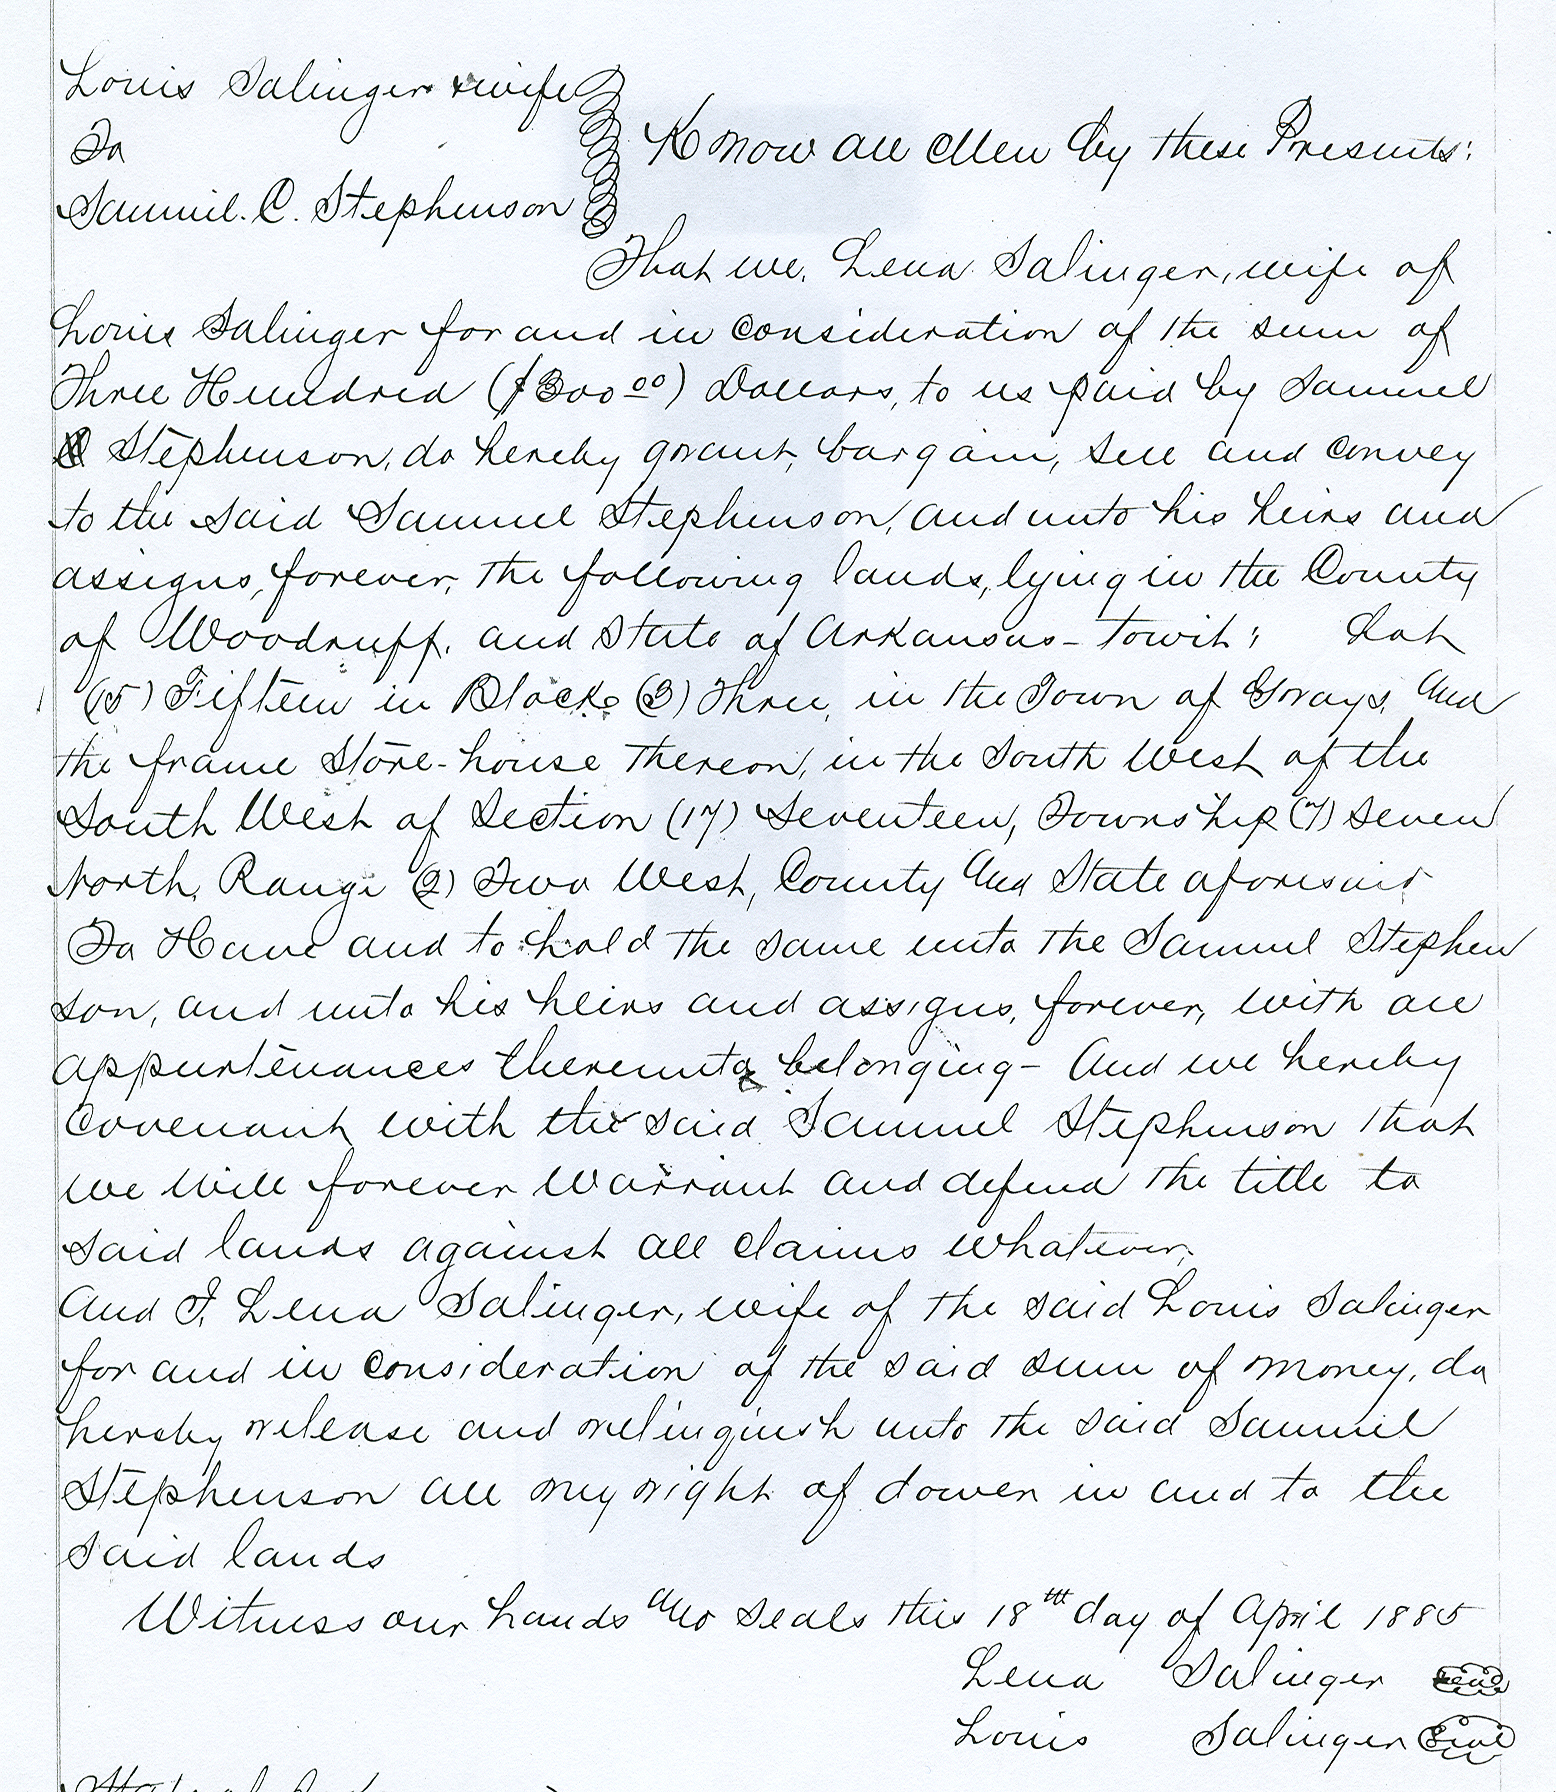 Louis Salinger & wife
To
Know all Men by these Presents:
Samuel. C. Stephenson
That we, Lena Salinger, wife of
Louis Salinger for and in consideration of the sum of
Three Hundred ($300 00) Dollars, to us paid by Samuel
Stephenson, do hereby grant, bargain, sell and convey
to the said Samuel Stephenson, and unto his heirs and
assigns, forever, the following lands, lying in the County
of Woodruff, and State of Arkansas - towit; Lot
(15) Fifteen in Block (3) Three, in the Town of Grays, And
the frame Store-house thereon, in the South West of the
South West of Section (17) Seventeen, Township (7) Seven
North, Range (2) Two West, County And State aforesaid
To Have and to hold the same unto the Samuel Stephen
son, and unto his heirs and assigns, forever, with all
appurtenances thereunto belonging - And we hereby
Covenant with the said Samuel Stephenson that
we will forever Warrant and defend the title to
said lands against all claims whatever,
And I, Lena Salinger, wife of the said Louis Salinger
for and in consideration of the said sum of money, do
hereby release and relinquish unto the said Samuel
Stephenson all my right of dower in and to the
said lands
Witness our hands And seals this 18th day of April 1885
Lena Salinger Seal
Louis Salinger Seal